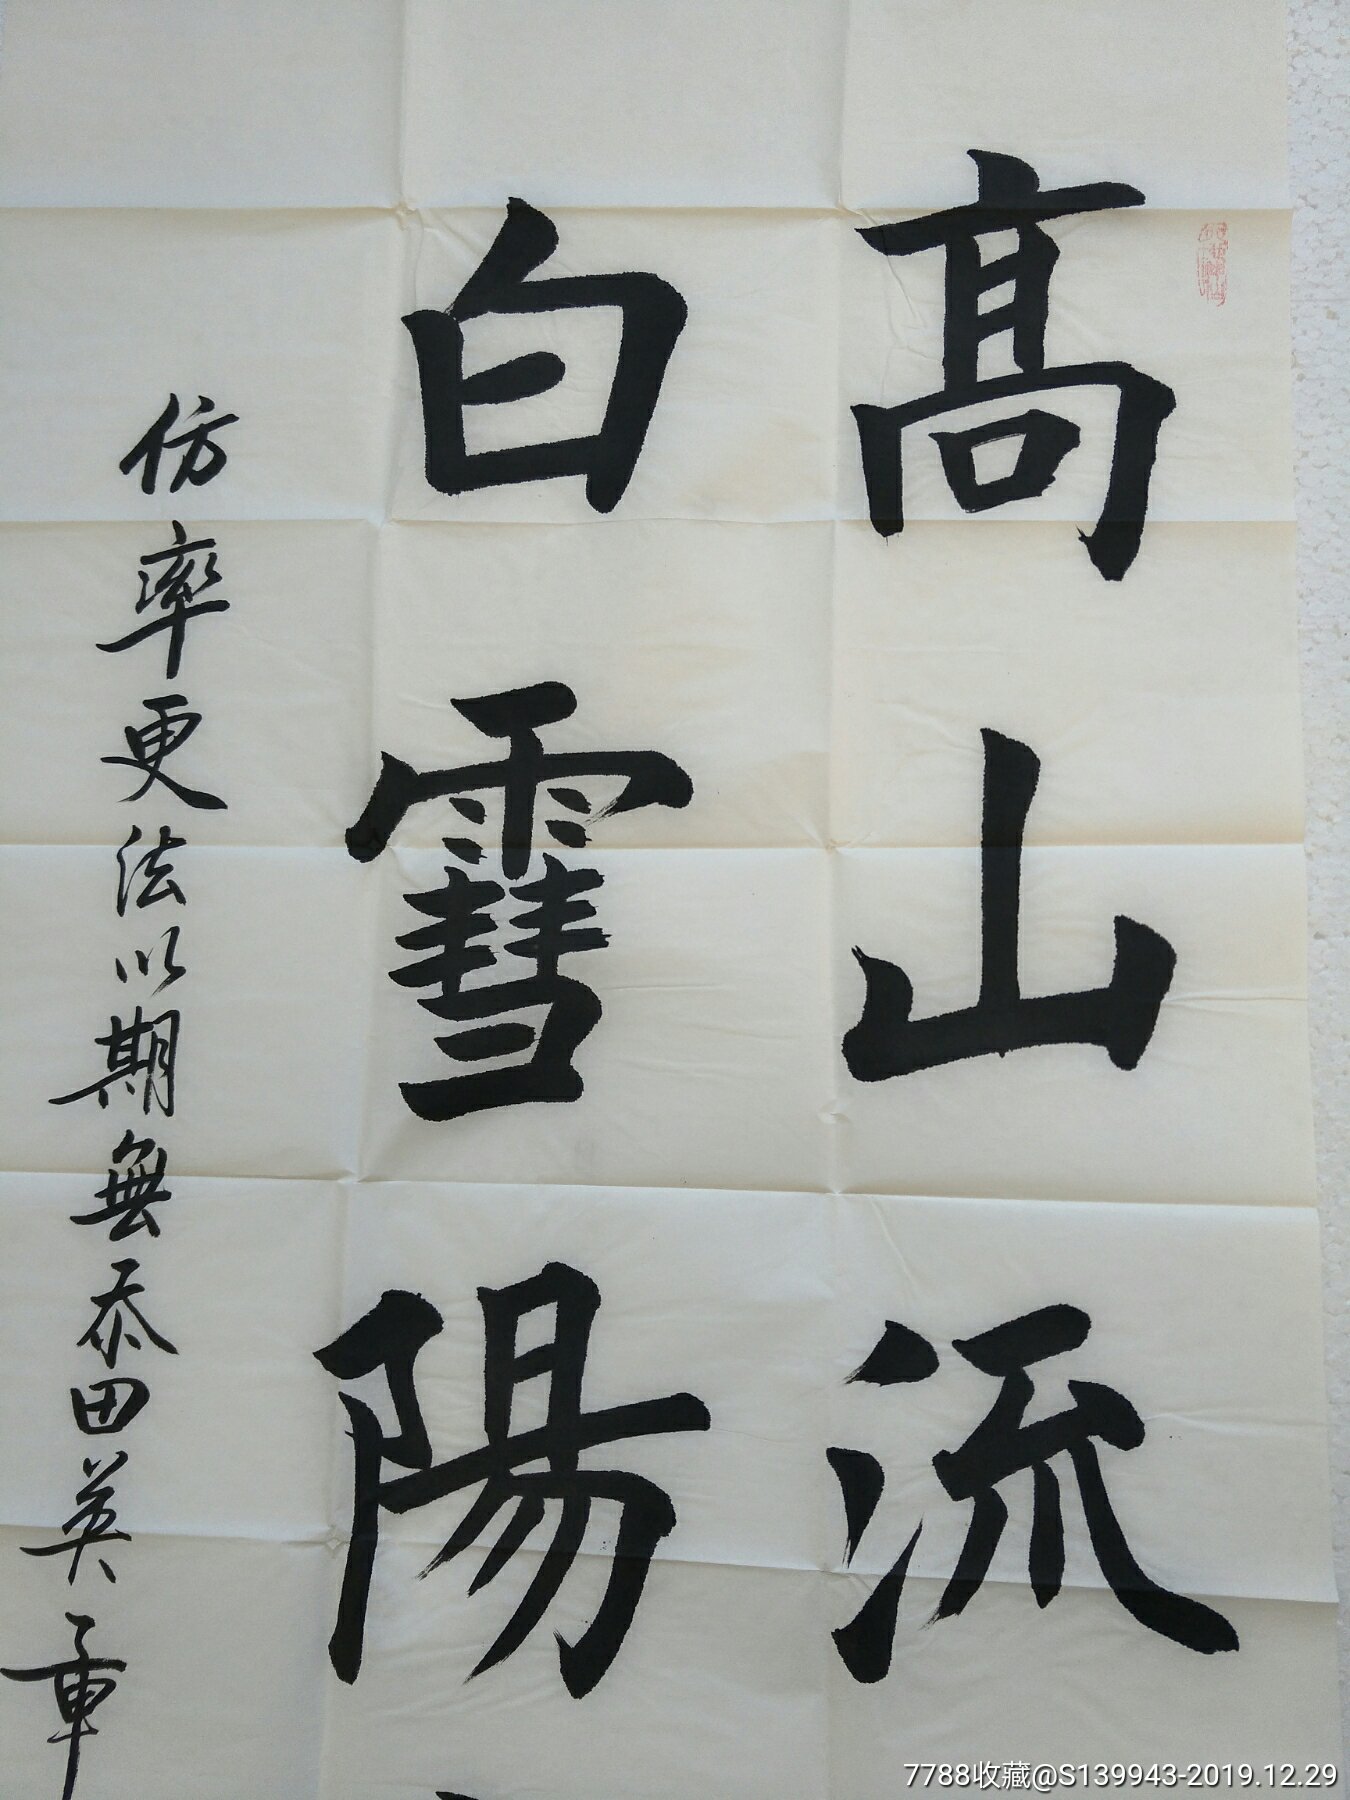 高山流
白雪陽
仿率更法以期無忝田英章
7788收藏@S139943-2019.12.29